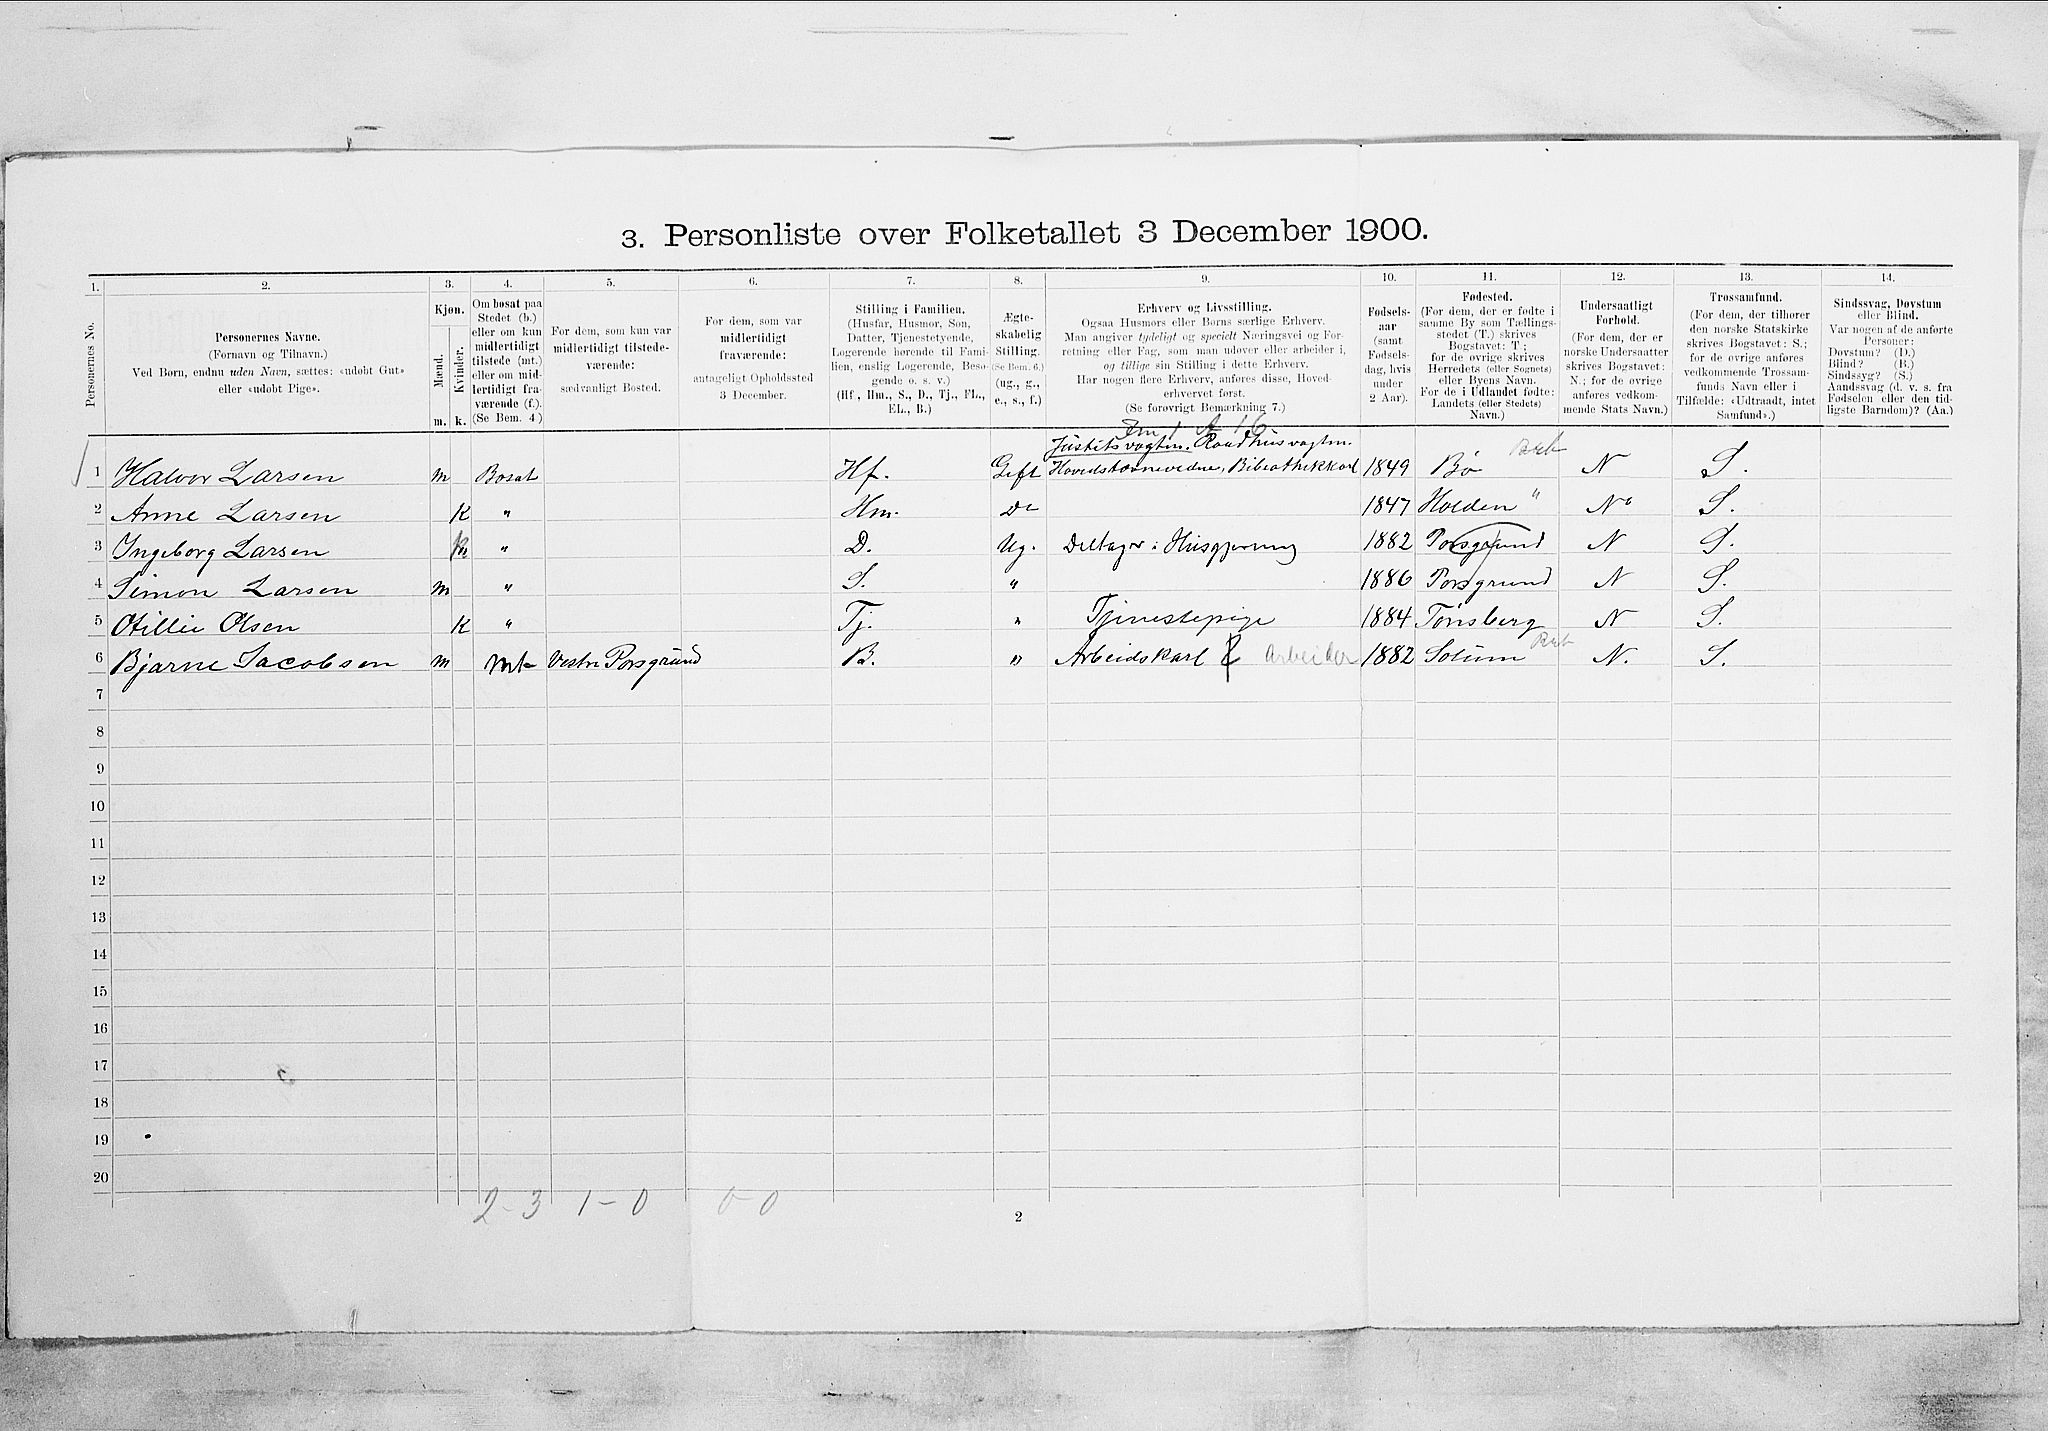 3. Personliste over Folketallet 3 December 1900.
1. 2. 3. 4. 5. 6. 7. 8. 9. 10. 11. 12. 13. 14.
Personernes No.
Personernes Navne.
(Fornavn og Tilnavn.)
Ved Børn, endnu uden Navn, sættes: «udøbt Gut»
eller «udøbt Pige».
Kjøn.
Mænd.
Kvinder.
m. k.
Om bosat paa
Stedet (b.)
eller om kun
midlertidigt
tilstede (mt.)
eller om mid-
lertidigt fra-
værende (f.).
(Se Bem. 4)
For dem, som kun var
midlertidigt tilstede-
værende:
sædvanligt Bosted.
For dem, som var
midlertidigt
fraværende:
antageligt Opholdssted
3 December.
Stilling i Familien.
(Husfar, Husmor, Søn,
Datter, Tjenestetyende,
Logerende hørende til Fami-
lien, enslig Logerende, Besø-
gende o. s. v.)
(Hf., Hm., S., D., Tj., FL.,
EL., B.)
Ægte-
skabelig
Stilling.
(Se Bem. 6.)
(ug., g.,
e., s., f.)
Erhverv og Livsstilling.
Ogsaa Husmors eller Børns særlige Erhverv.
Man angiver tydeligt og specielt Næringsvei og For-
retning eller Fag, som man udøver eller arbeider i,
og tillige sin Stilling i dette Erhverv.
Har nogen flere Erhverv, anføres disse, Hoved-
erhvervet først.
(Se forøvrigt Bemærkning 7.)
Fødsels-
aar
(samt
Fødsels-
dag, hvis
under
2 Aar).
Fødested.
(For dem, der er fødte i
samme By som Tællings-
stedet (T.) skrives
Bogstavet: T.;
for de øvrige skrives
Herredets (eller Sognets)
eller Byens Navn.
For de i Udlandet fødte:
Landets (eller Stedets)
Navn.)
Undersaatligt
Forhold.
(For dem, der er
norske Undersaatter
skrives Bogstavet:
N.; for de øvrige
anføres vedkom-
mende Stats Navn.)
Trossamfund.
(For dem, der tilhører
den norske Statskirke
skrives Bogstavet: S.;
for de øvrige anføres
vedkommende Trossam-
funds Navn eller i
Tilfælde: «Udtraadt, intet
Samfund».)
Sindssvag, Døvstum
eller Blind.
Var nogen af de anførte
Personer:
Døvstum? (D.)
Blind? (B.)
Sindssyg? (S.)
Aandssvag (d. v. s. fra
Fødselen eller den tid-
ligste Barndom)? (Aa.)
Justitsvagtm. Raadhusvagtm.
1 Halvor Larsen m Bosat Hf. Gift 1849 Bø N S.
2 Anne Larsen K " Hm. Do 1847 Holden " N S.
3 Ingeborg Larsen K " D. Ug. Deltager i Husgjerning 1882 Porsgrund N S.
4 Simon Larsen m " S. " 1886 Porsgrund N S.
5 Otillie Olsen K " Tj. " Tjenestepige 1884 Tønsberg N S.
6 Bjarne Jacobsen m mt Vestre Porsgrund B. " Arbeidskarl Arbeider 1882 Solum N. S.
7
8
9
10
11
12
13
14
15
16
17
18
19
20
2-3 1-0 0-0
2